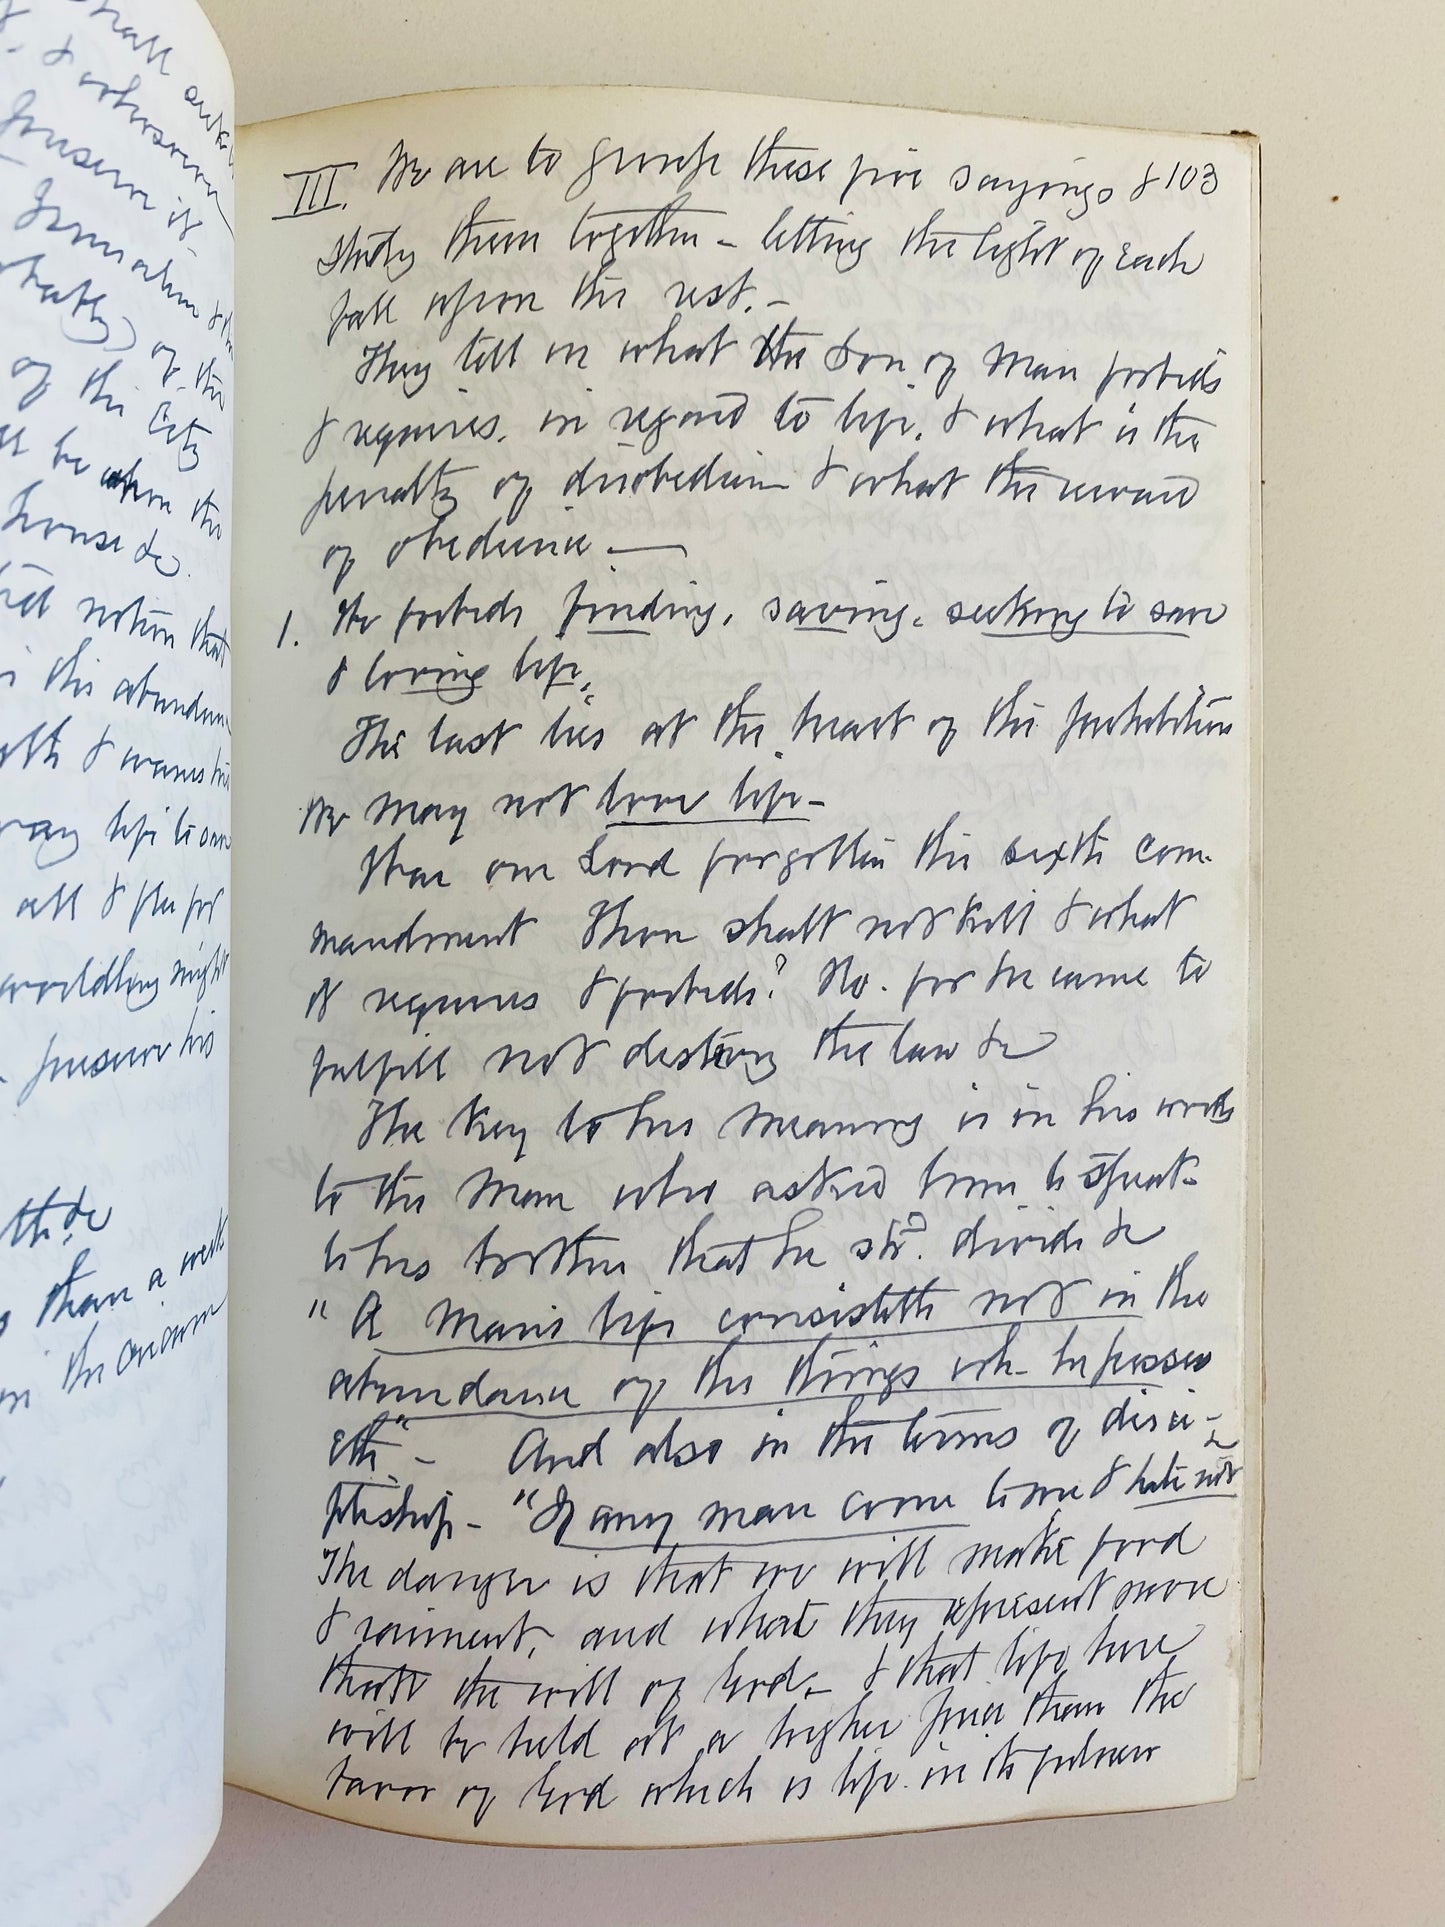 shall seek
& whosoever
preserve it -
Jerusalem & the
of the
of the City
be upon the
house &c.
notion that
this abundan
& wares his
life to save
all & flee for
worldling might
preserve his
&c
than a week
in the
III. We are to group these five sayings & 103
study them together - letting the light of each
fall upon the rest. -
They tell us what the Son of Man forbids
& requires. in regard to life, & what is the
penalty of disobedience & what the reward
of obedience. —
1. He forbids finding, saving, seeking to save
& loving life.
The last lies at the heart of the prohibition
We may not love life -
Has our Lord forgotten the sixth com-
mandment Thou shalt not kill & what
it requires & forbids? No. for he came to
fulfill not destroy the law &c
The key to his meaning is in his words
to the man who asked him to speak
to his brother that he shd. divide &c
"A man's life consisteth not in the
abundance of the things wh. he possess
eth" - And also in the terms of disci-
pleship - "If any man come to me & hate not
The danger is that we will make food
& raiment, and what they represent more
than the will of God - & that life here
will be held at a higher price than the
favor of God which is life in its fulness